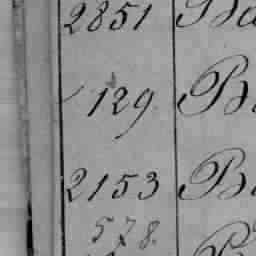 2851 Ba
129 B
2153 B
578